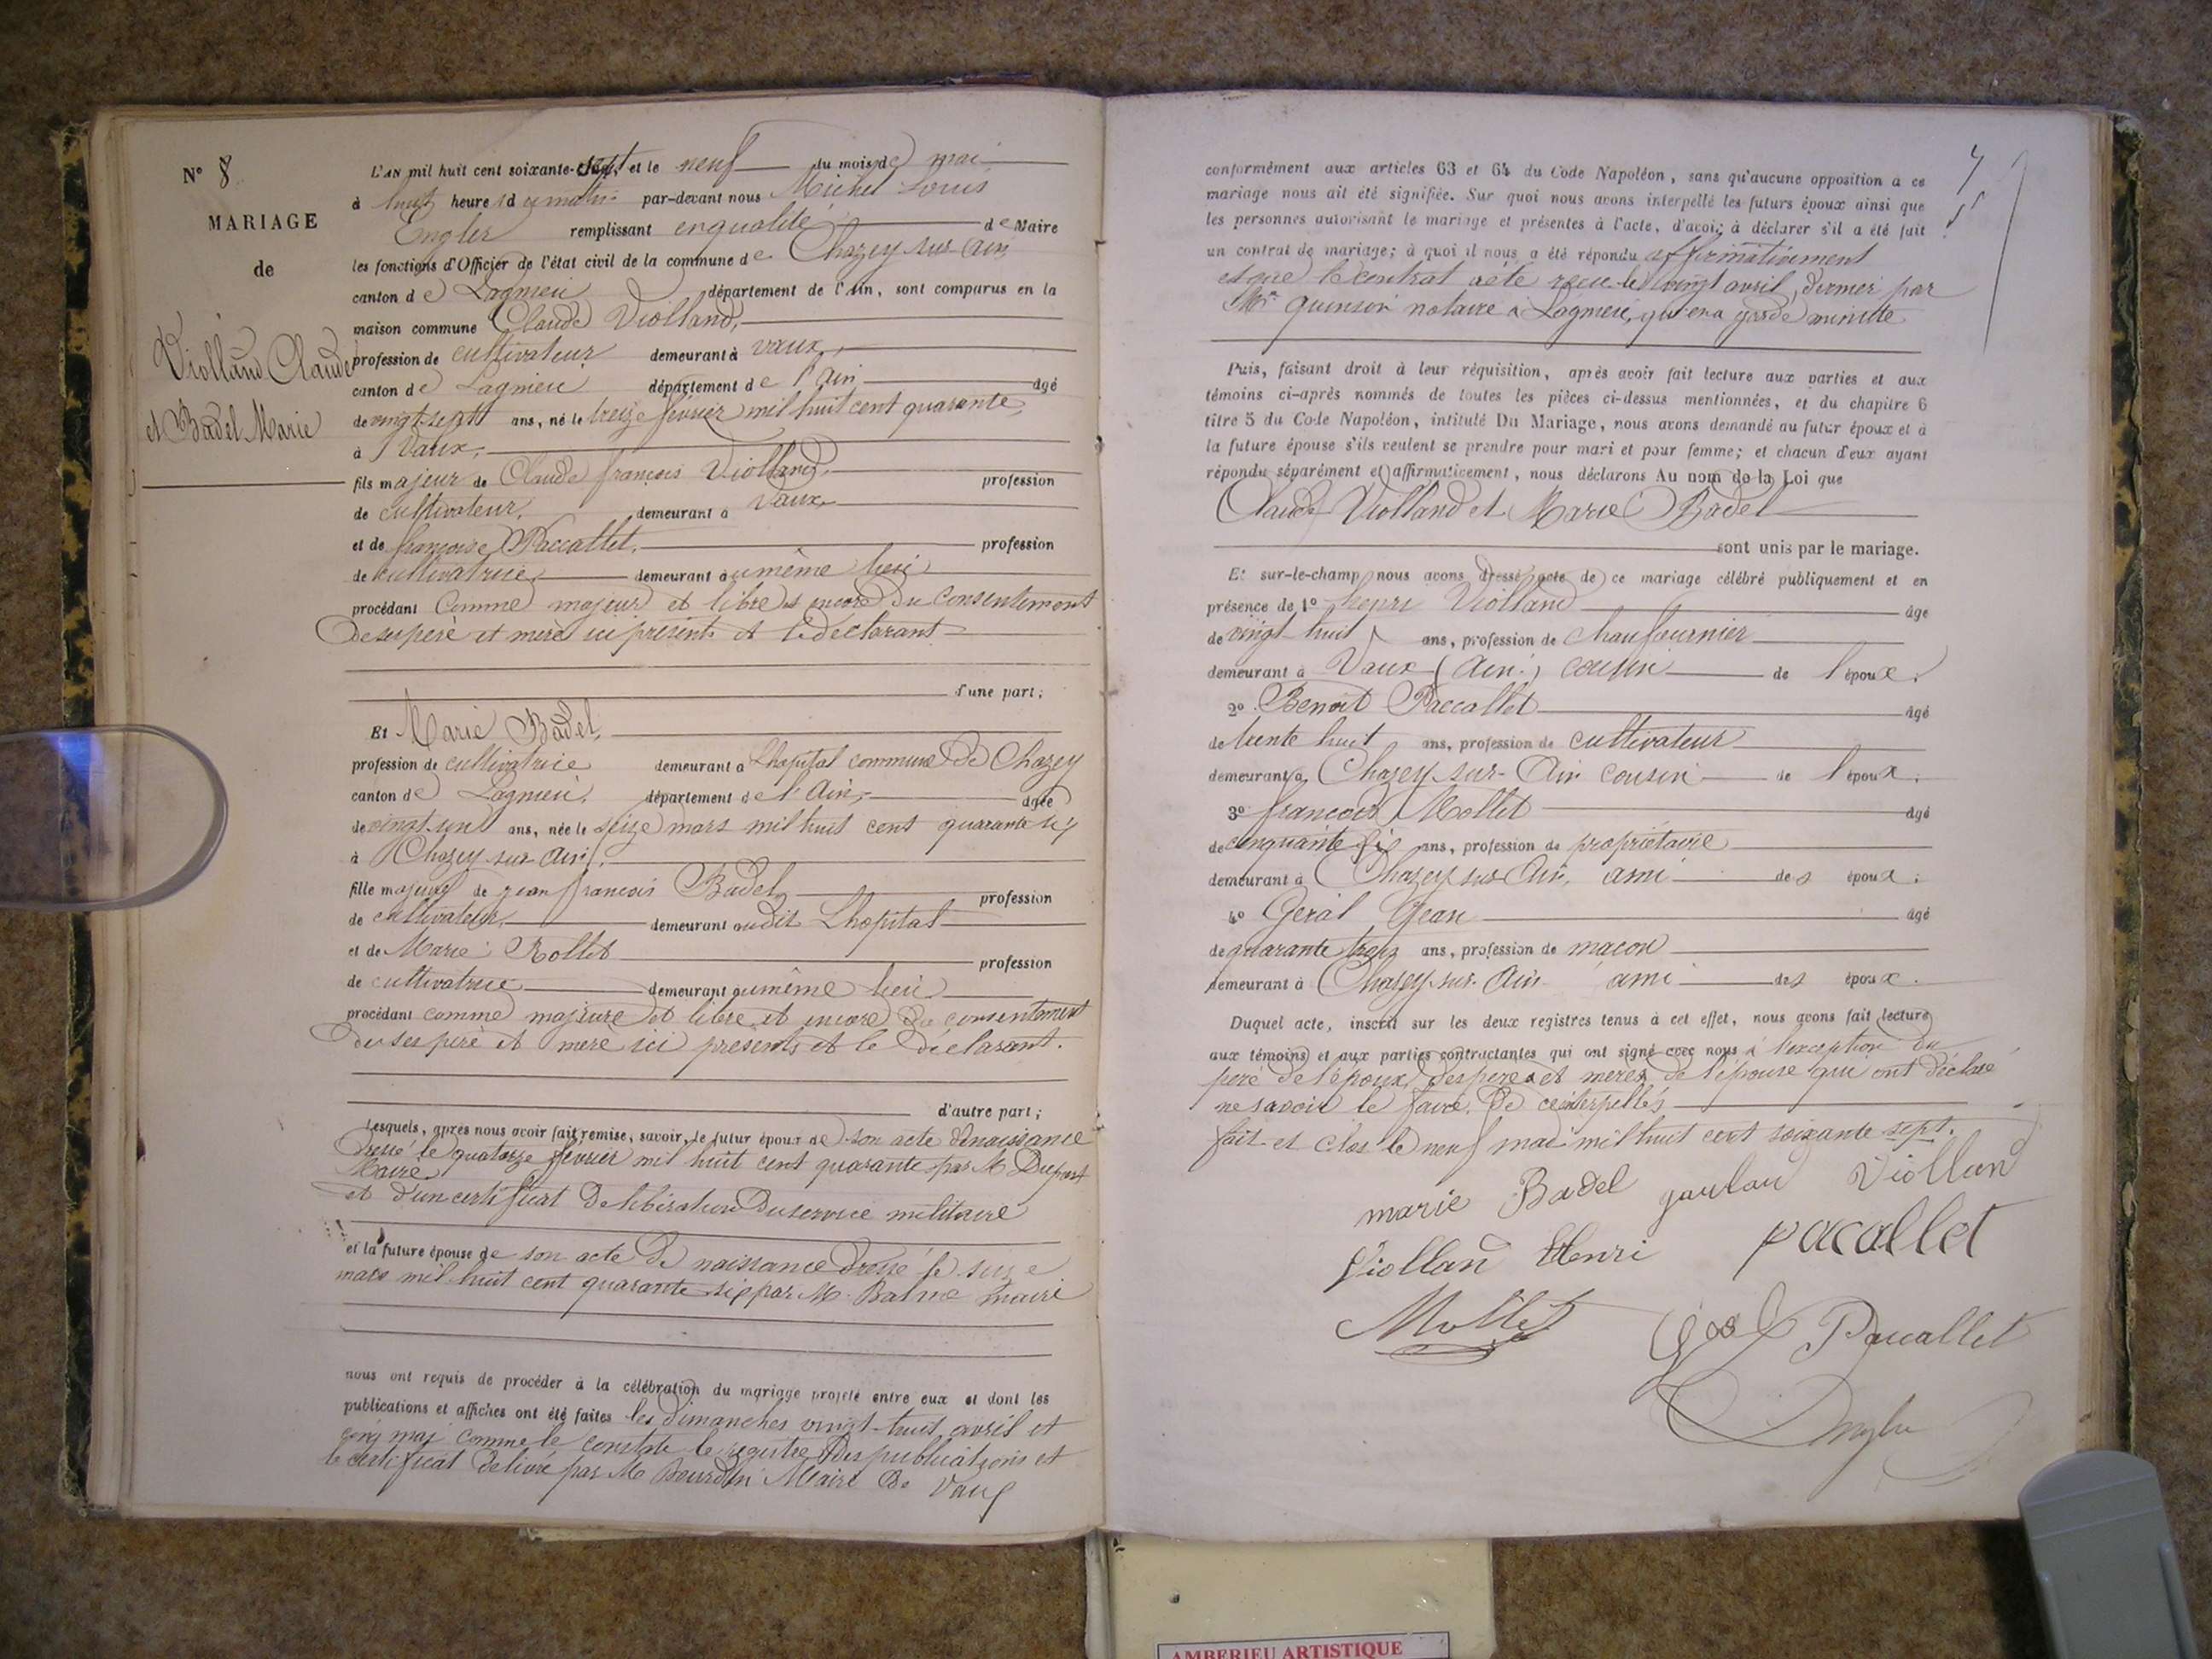 N° 8
MARIAGE
de
Violland Claude
et Badel Marie
L'AN mil huit cent soixante-sept et le neuf du mois de mai
à huit heures du matin par-devant nous Michel Louis
Engler remplissant en qualité de Maire
les fonctions d'Officier de l'état civil de la commune de Chazey sur Ain
canton de Lagnieu département de l'Ain, sont comparus en la
maison commune Claude Violland,
profession de cultivateur demeurant à Vaux,
canton de Lagnieu département de l'Ain âgé
de vingt-sept ans, né le treize février mil huit cent quarante,
à Vaux,
fils majeur de Claude françois Violland, profession
de cultivateur, demeurant à Vaux,
et de françoise Paccallet, profession
de cultivatrice, demeurant au même lieu
procédant comme majeur et libre et encore du consentement
de ses père et mère ici présents et le déclarant
d'une part;
Et Marie Badel,
profession de cultivatrice demeurant à Lhopital commune de Chazey
canton de Lagnieu, département de l'Ain, âgée
de vingt-un ans, née le seize mars mil huit cent quarante six
à Chazey sur Ain,
fille majeure de jean françois Badel profession
de cultivateur, demeurant audit Lhopital
et de Marie Rollet profession
de cultivatrice demeurant au même lieu
procédant comme majeure et libre et encore du consentement
de ses père et mère ici présents et le déclarant.
d'autre part;
Lesquels, après nous avoir fait remise, savoir, le futur époux de son acte de naissance
dressé le quatorze février mil huit cent quarante par M Dupont
Maire
et d'un certificat de libération du service militaire
et la future épouse de son acte de naissance dressé le seize
mars mil huit cent quarante six par M. Balme maire
nous ont requis de procéder à la célébration du mariage projeté entre eux et dont les
publications et affiches ont été faites les dimanches vingt-huit avril et
cinq mai comme le constate le registre des publications et
le certificat délivré par M Bourdin Maire de Vaux
conformément aux articles 63 et 64 du Code Napoléon, sans qu'aucune opposition à ce
mariage nous ait été signifiée. Sur quoi nous avons interpellé les futurs époux ainsi que
les personnes autorisant le mariage et présentes à l'acte, d'avoir à déclarer s'il a été fait
un contrat de mariage; à quoi il nous a été répondu affirmativement
et que le contrat a été reçu le vingt avril dernier par
Me Quinson notaire à Lagnieu, qui en a gardé minute
Puis, faisant droit à leur réquisition, après avoir fait lecture aux parties et aux
témoins ci-après nommés de toutes les pièces ci-dessus mentionnées, et du chapitre 6
titre 5 du Code Napoléon, intitulé Du Mariage, nous avons demandé au futur époux et à
la future épouse s'ils veulent se prendre pour mari et pour femme; et chacun d'eux ayant
répondu séparément et affirmativement, nous déclarons Au nom de la Loi que
Claude Violland et Marie Badel
sont unis par le mariage.
Et sur-le-champ nous avons dressé acte de ce mariage célébré publiquement et en
présence de 1° henri Violland âgé
de vingt huit ans, profession de chaufournier
demeurant à Vaux (Ain) cousin de l'époux.
2° Benoit Paccallet âgé
de trente huit ans, profession de cultivateur
demeurant à Chazey-sur-Ain cousin de l'époux.
3° françois Mollet âgé
de cinquante six ans, profession de propriétaire
demeurant à Chazey sur Ain, ami des époux;
4° Geral Jean âgé
de quarante trois ans, profession de maçon
demeurant à Chazey-sur-Ain ami des époux.
Duquel acte, inscrit sur les deux registres tenus à cet effet, nous avons fait lecture
aux témoins et aux parties contractantes qui ont signé avec nous à l'exception du
père de l'époux, des père et mère de l'épouse qui ont déclaré
ne savoir le faire. De ce interpellés
fait et clos le neuf mai mil huit cent soixante sept.
marie Badel Violland
Violland Henri pacallet
Mollet Paccallet
Engler
AMBERIEU ARTISTIQUE